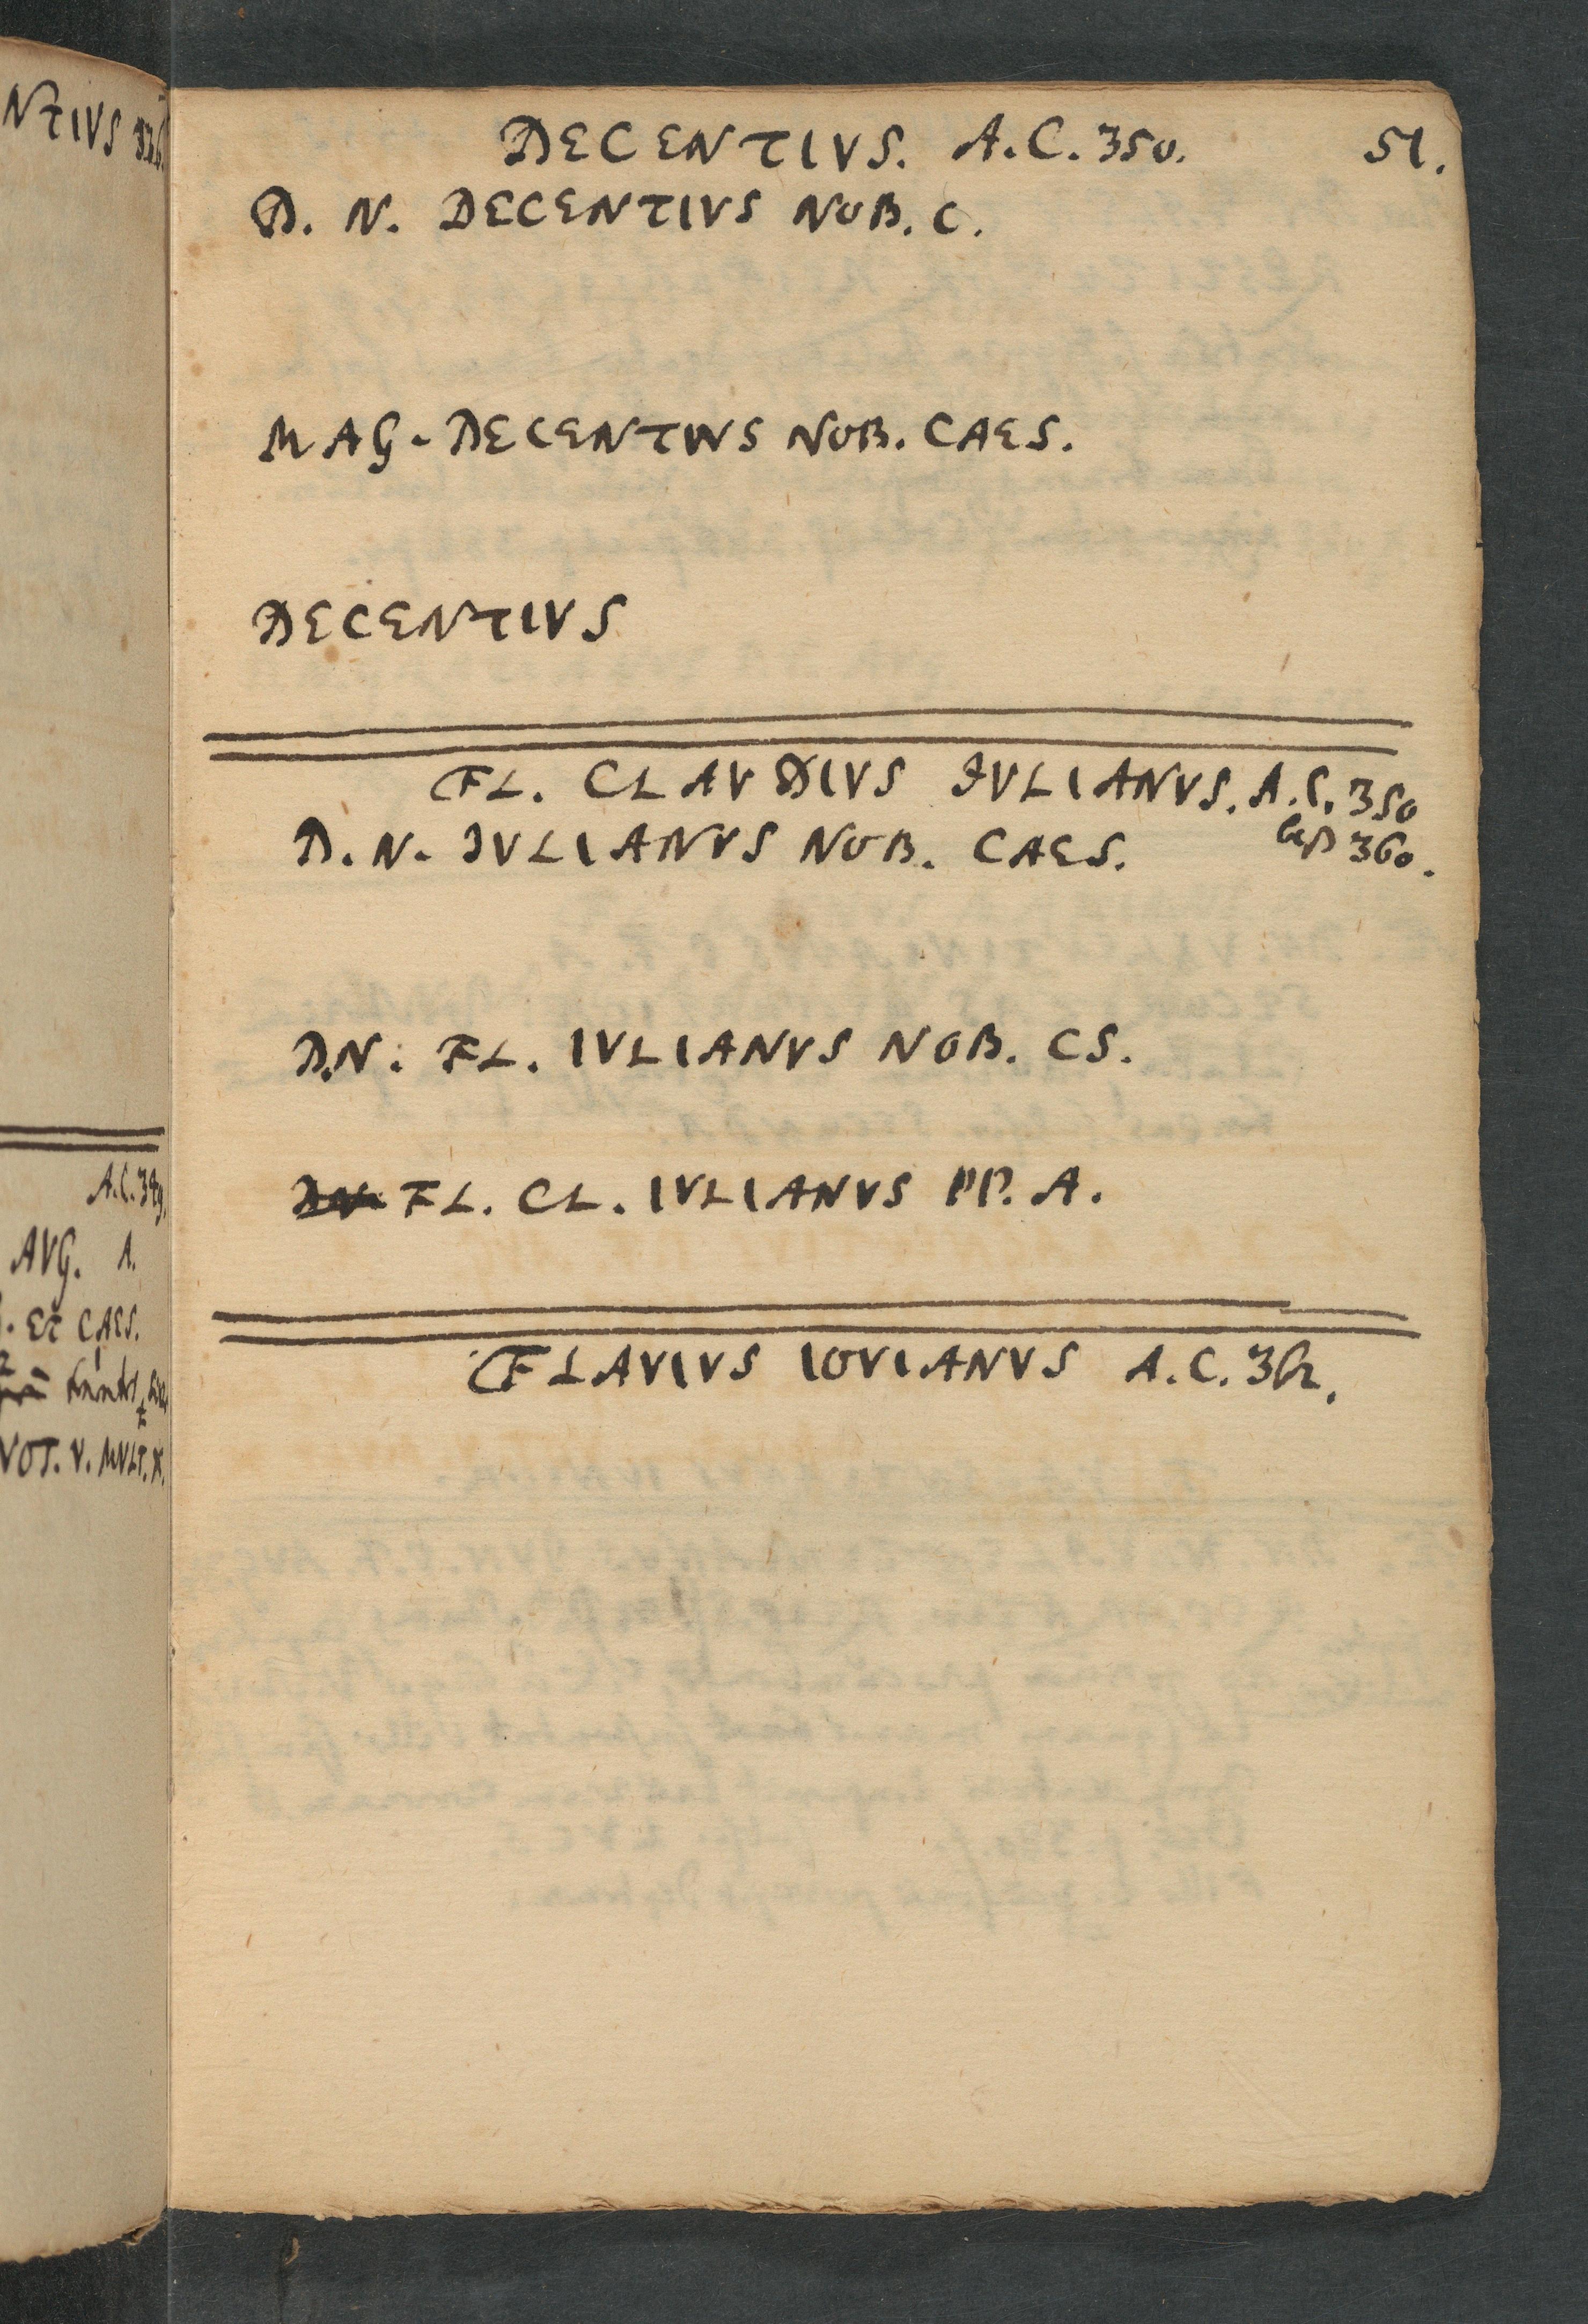 NTIVS
A.C. 349.
AVG. A.
. Et CAES.
VOT. V. MVLT. X.
DECENTIVS. A.C. 350. 51.
D. N. DECENTIVS NOB. C.
MAG. DECENTIVS NOB. CAES.
DECENTIVS
FL. CLAVDIVS IVLIANVS. A.C. 350
D. N. IVLIANVS NOB. CAES. 360.
D.N. FL. IVLIANVS NOB. CS.
DN FL. CL. IVLIANVS PP. A.
FLAVIVS IOVIANVS A.C.